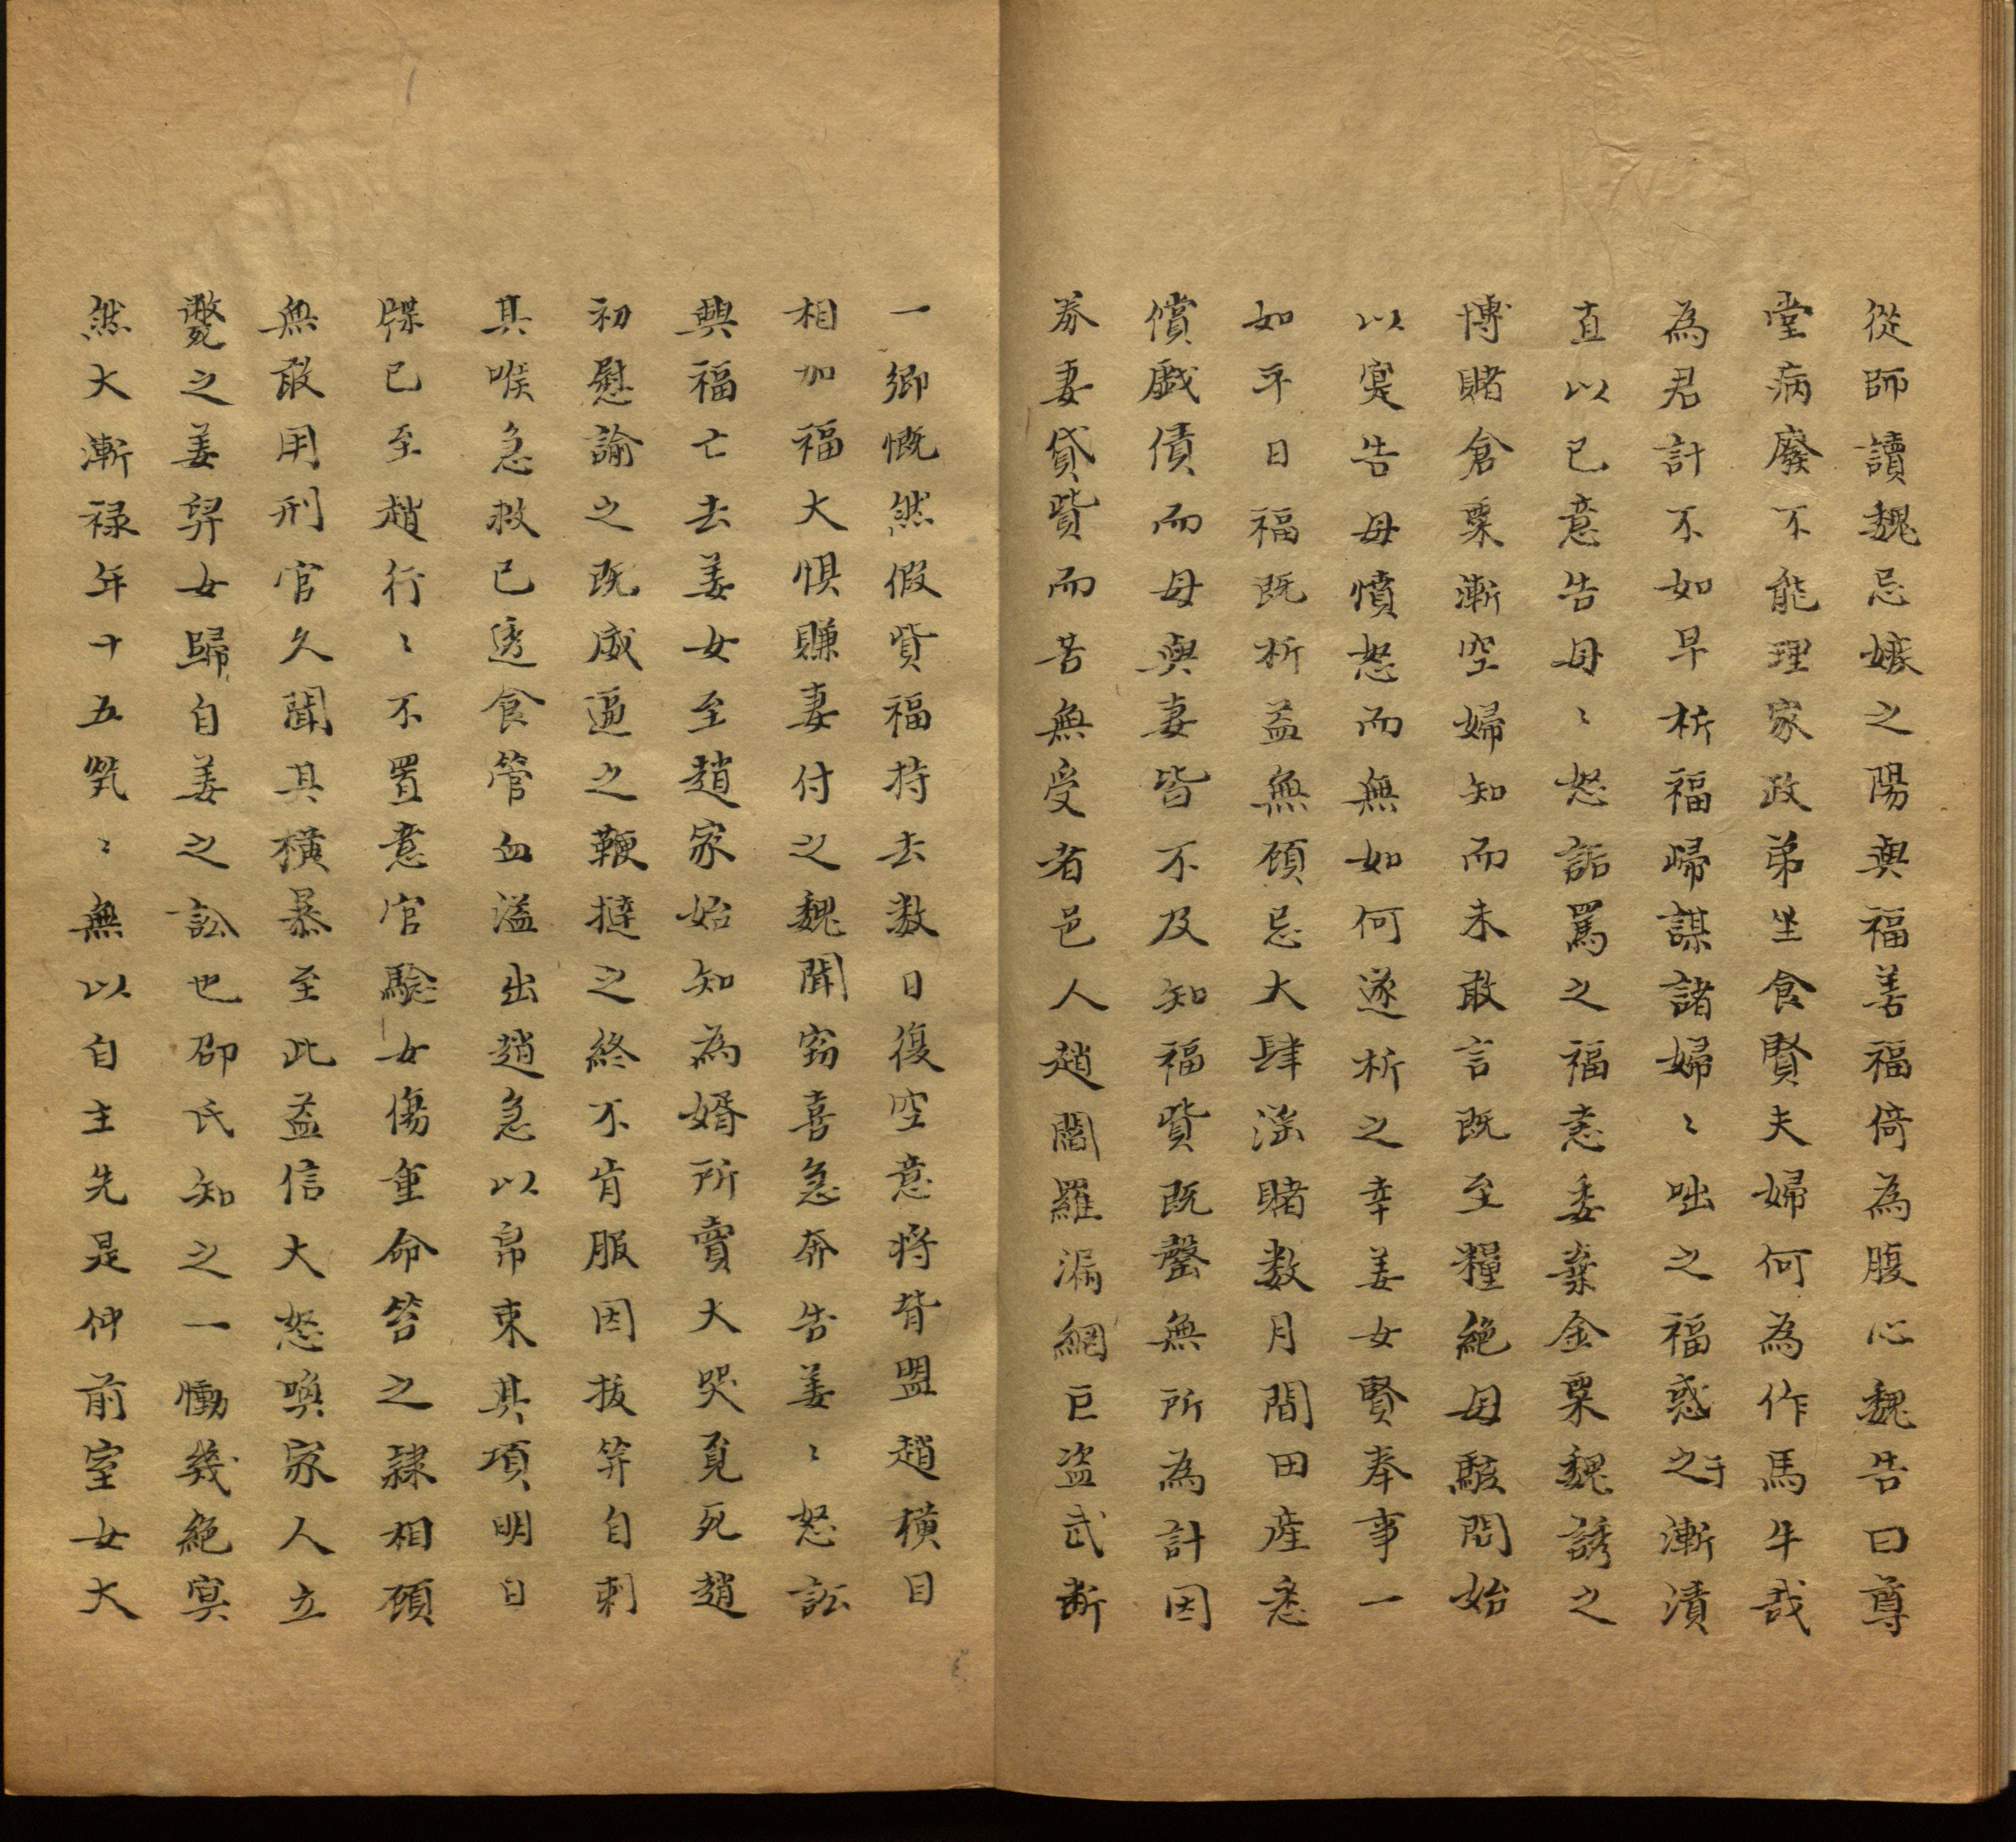 從師讀魏忌嫉之陽與福善福倚為腹心魏告曰尊
堂病廢不能理家政弟坐食賢夫婦何為作馬牛哉
為君計不如早析福歸謀諸婦〻咄之福惑之于漸漬
直以已意告母〻怒詬罵之福恚委棄金粟魏誘之
博賭倉粟漸空婦知而未敢言既至糧絶母駭問始
以寔告母憤怒而無如何遂析之幸姜女賢奉事一
如平日福既析益無顧忌大肆淫賭数月間田産悉
償戯債而母與妻皆不及知福貲既罄無所為計因
券妻貸貲而苦無受者邑人趙閻羅漏網巨盗武断
一鄉慨然假貲福持去数日復空意将背盟趙横目
相加福大惧賺妻付之魏聞窃喜急奔告姜〻怒訟
興福亡去姜女至趙家始知為婿所賣大哭覓死趙
初慰諭之既威逼之鞭撻之終不肯服因拔笄自刺
其喉急救已透食管血溢出趙急以帛束其項明日
牒已至趙行〻不置意官騐女傷重命笞之隷相顧
無敢用刑官久聞其横暴至此益信大怒喚家人立
斃之姜舁女歸自姜之訟也邵氏知之一慟幾絶寞
然大漸禄年十五煢〻無以自主先是仲前室女大